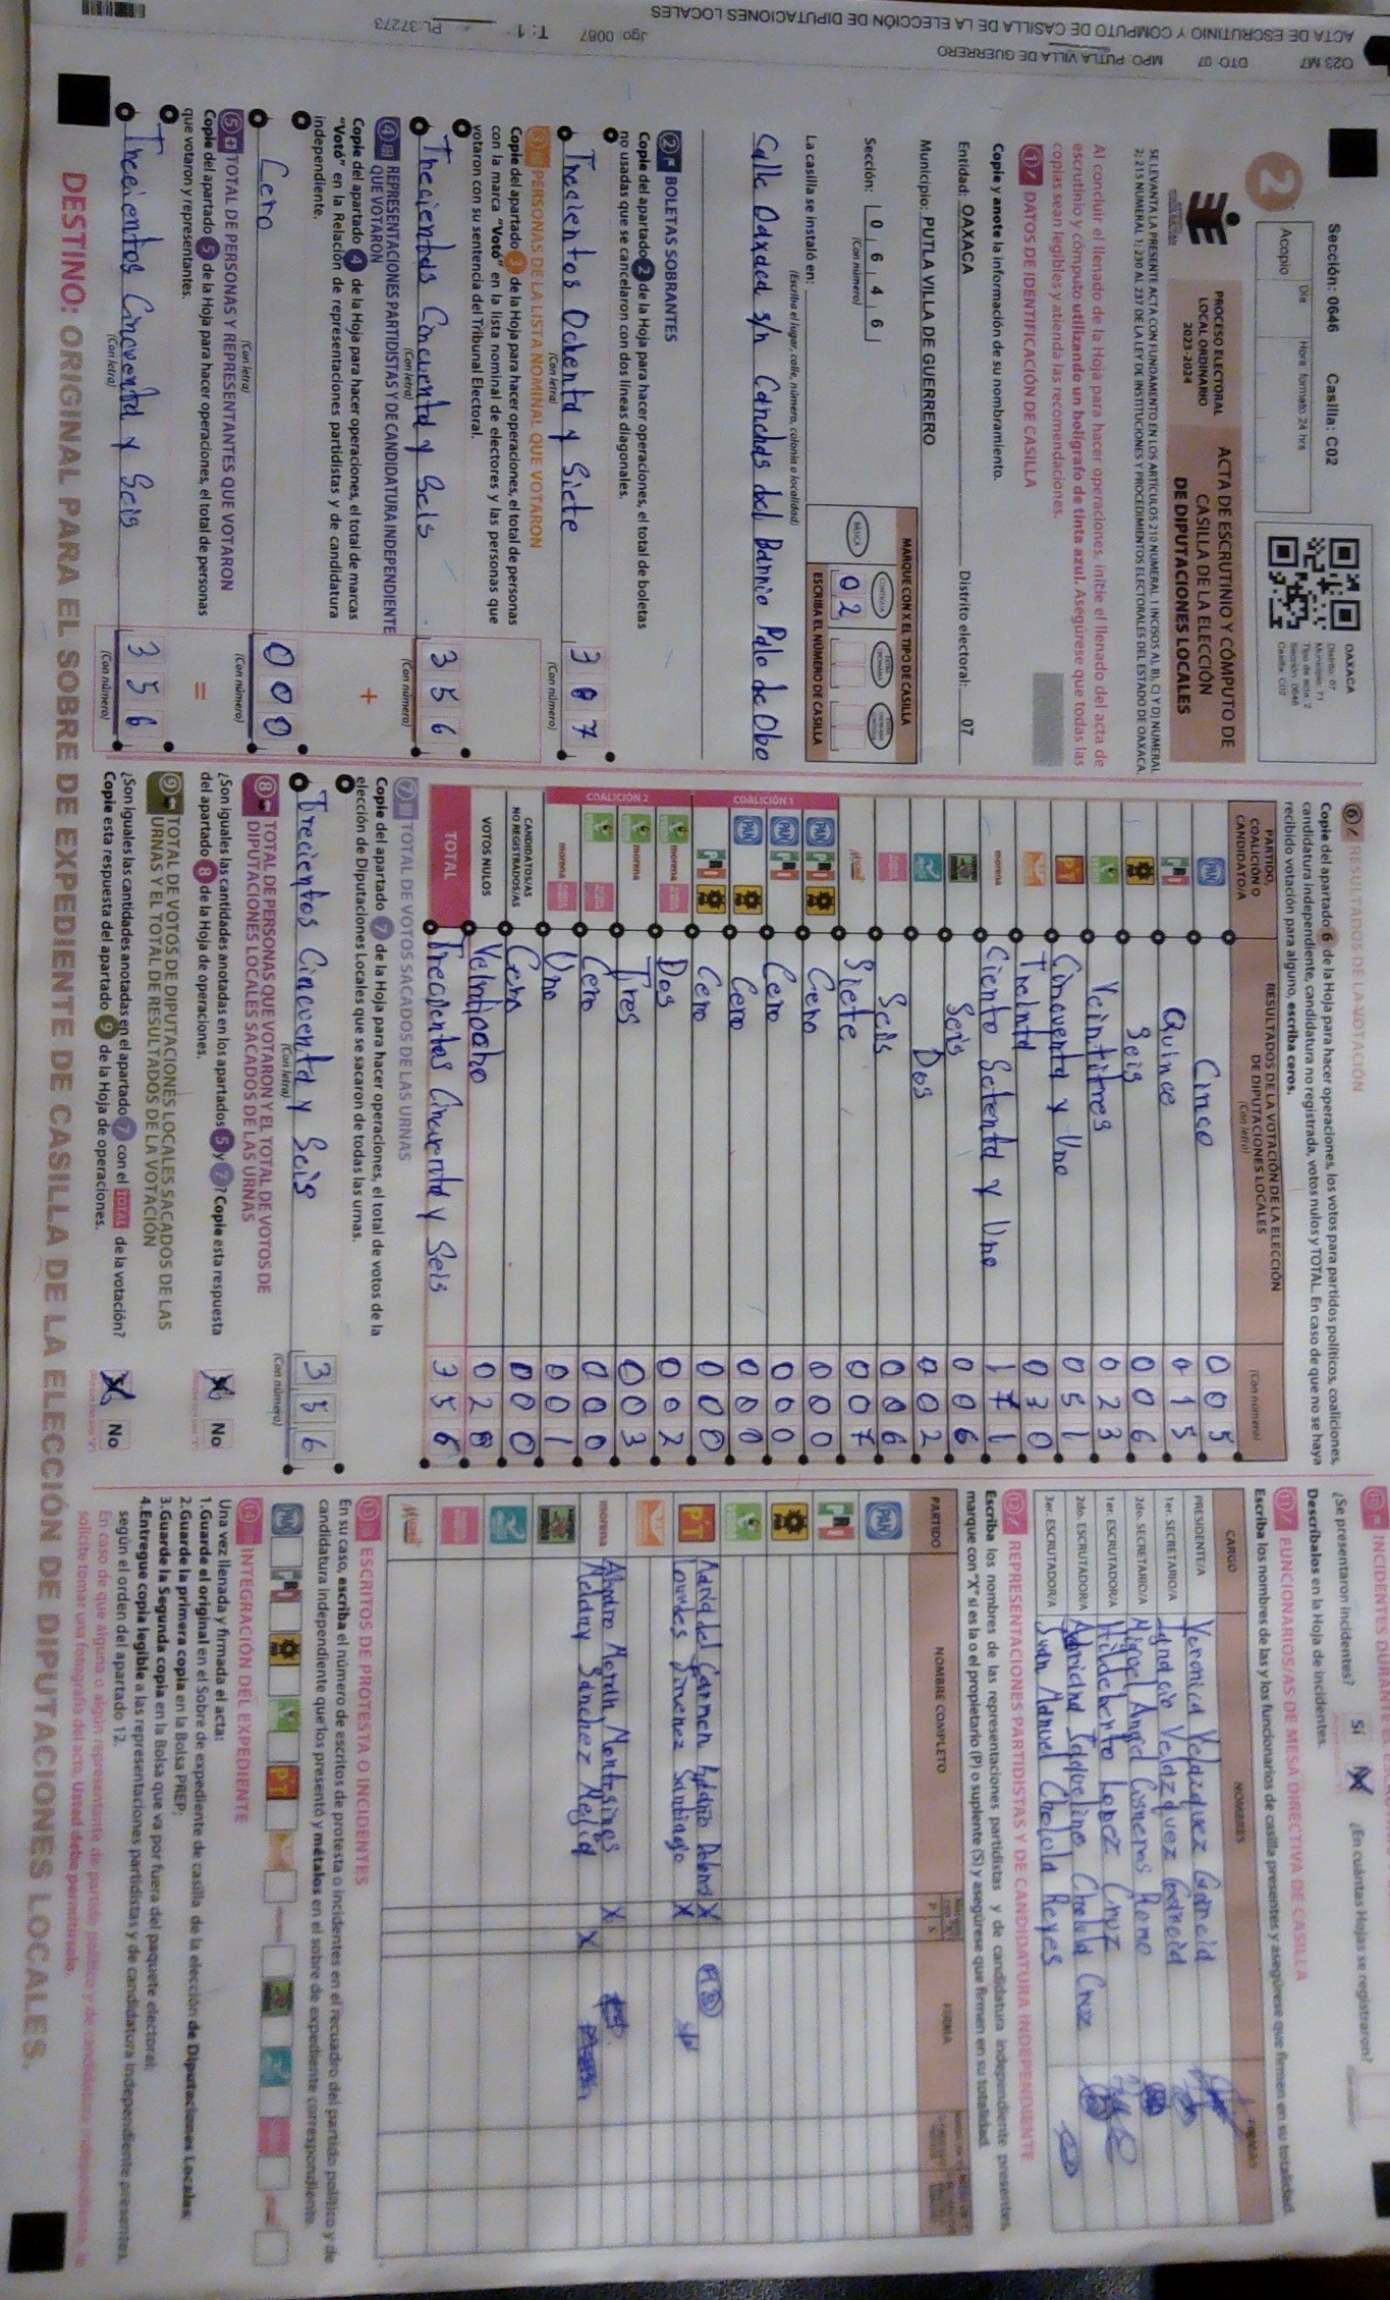 ACTA DE ESCRUTINIO Y CÓMPUTO DE CASILLA DE LA ELECCIÓN DE DIPUTACIONES LOCALES
023 M7 DTO: 07 MPO: PUTLA VILLA DE GUERRERO Jgo: 0087 T: 1 PL:37273
Sección: 0646 Casilla: C02
2
Acopio
Día Hora formato 24 hrs
OAXACA
Distrito: 07
Municipio: 71
Tipo de acta: 2
Sección: 0646
Casilla: C02
PROCESO ELECTORAL
LOCAL ORDINARIO
2023-2024
ACTA DE ESCRUTINIO Y CÓMPUTO DE
CASILLA DE LA ELECCIÓN
DE DIPUTACIONES LOCALES
SE LEVANTA LA PRESENTE ACTA CON FUNDAMENTO EN LOS ARTÍCULOS 210 NUMERAL 1 INCISOS A), B), C) Y D) NUMERAL
2; 215 NUMERAL 1; 230 AL 237 DE LA LEY DE INSTITUCIONES Y PROCEDIMIENTOS ELECTORALES DEL ESTADO DE OAXACA.
Al concluir el llenado de la Hoja para hacer operaciones, inicie el llenado del acta de
escrutinio y cómputo utilizando un bolígrafo de tinta azul. Asegúrese que todas las
copias sean legibles y atienda las recomendaciones.
1 DATOS DE IDENTIFICACIÓN DE CASILLA
Copie y anote la información de su nombramiento.
Entidad: OAXACA Distrito electoral: 07
Municipio: PUTLA VILLA DE GUERRERO
Sección: 0 6 4 6
(Con número)
MARQUE CON X EL TIPO DE CASILLA
BÁSICA
0 2
ESCRIBA EL NÚMERO DE CASILLA
La casilla se instaló en:
(Escriba el lugar, calle, número, colonia o localidad)
Calle Oaxaca s/n Canchas del Barrio Palo de Obo
2 BOLETAS SOBRANTES
Copie del apartado 2 de la Hoja para hacer operaciones, el total de boletas
no usadas que se cancelaron con dos líneas diagonales.
Trecientos Ochenta y Siete 3 8 7
(Con letra) (Con número)
3 PERSONAS DE LA LISTA NOMINAL QUE VOTARON
Copie del apartado 3 de la Hoja para hacer operaciones, el total de personas
con la marca "Votó" en la lista nominal de electores y las personas que
votaron con su sentencia del Tribunal Electoral.
Trecientos Cincuenta y Seis 3 5 6
(Con letra) (Con número)
4 REPRESENTACIONES PARTIDISTAS Y DE CANDIDATURA INDEPENDIENTE
QUE VOTARON
Copie del apartado 4 de la Hoja para hacer operaciones, el total de marcas
"Votó" en la Relación de representaciones partidistas y de candidatura
independiente.
+
Cero 0 0 0
(Con letra) (Con número)
5 TOTAL DE PERSONAS Y REPRESENTANTES QUE VOTARON
Copie del apartado 5 de la Hoja para hacer operaciones, el total de personas
que votaron y representantes.
=
Trecientos Cincuenta y Seis 3 5 6
(Con letra) (Con número)
6 RESULTADOS DE LA VOTACIÓN
Copie del apartado 6 de la Hoja para hacer operaciones, los votos para partidos políticos, coaliciones,
candidatura independiente, candidatura no registrada, votos nulos y TOTAL. En caso de que no se haya
recibido votación para alguno, escriba ceros.
PARTIDO, COALICIÓN O CANDIDATO/A
RESULTADOS DE LA VOTACIÓN DE LA ELECCIÓN DE DIPUTACIONES LOCALES
(Con letra) (Con número)
PAN Cinco 0 0 5
PRI Quince 0 1 5
Seis 0 0 6
Veintitres 0 2 3
PT Cincuenta y Uno 0 5 1
Treinta 0 3 0
morena Ciento Setenta y Uno 1 7 1
Seis 0 0 6
Dos 0 0 2
Seis 0 0 6
Siete 0 0 7
COALICIÓN 1
PAN PRI Cero 0 0 0
PAN PRI Cero 0 0 0
PAN Cero 0 0 0
PRI Cero 0 0 0
COALICIÓN 2
morena Dos 0 0 2
morena Tres 0 0 3
Cero 0 0 0
morena Uno 0 0 1
CANDIDATOS/AS NO REGISTRADOS/AS Cero 0 0 0
VOTOS NULOS Veintiocho 0 2 8
TOTAL Trecientos Cincuenta y Seis 3 5 6
7 TOTAL DE VOTOS SACADOS DE LAS URNAS
Copie del apartado 7 de la Hoja para hacer operaciones, el total de votos de la
elección de Diputaciones Locales que se sacaron de todas las urnas.
Trecientos Cincuenta y Seis 3 5 6
(Con letra) (Con número)
8 TOTAL DE PERSONAS QUE VOTARON Y EL TOTAL DE VOTOS DE
DIPUTACIONES LOCALES SACADOS DE LAS URNAS
¿Son iguales las cantidades anotadas en los apartados 5 y 7? Copie esta respuesta
del apartado 8 de la Hoja de operaciones.
X No
9 TOTAL DE VOTOS DE DIPUTACIONES LOCALES SACADOS DE LAS
URNAS Y EL TOTAL DE RESULTADOS DE LA VOTACIÓN
¿Son iguales las cantidades anotadas en el apartado 7 con el TOTAL de la votación?
Copie esta respuesta del apartado 9 de la Hoja de operaciones.
X No
¿Se presentaron incidentes? Sí X ¿En cuántas Hojas se registraron?
Descríbalos en la Hoja de incidentes.
11 FUNCIONARIOS/AS DE MESA DIRECTIVA DE CASILLA
Escriba los nombres de las y los funcionarios de casilla presentes y asegúrese que firmen en su totalidad.
CARGO NOMBRES
PRESIDENTE/A Veronica Velazquez Garcia
1er. SECRETARIO/A Ignacio Velazquez Garcia
2do. SECRETARIO/A Miguel Angel Cisneros Romo
1er. ESCRUTADOR/A Hildeberto Lopez Cruz
2do. ESCRUTADOR/A Adriana Jaqueline Cholula Cruz
3er. ESCRUTADOR/A Juan Manuel Cholola Reyes
12 REPRESENTACIONES PARTIDISTAS Y DE CANDIDATURA INDEPENDIENTE
Escriba los nombres de las representaciones partidistas y de candidatura independiente presentes,
marque con "X" si es la o el propietario (P) o suplente (S) y asegúrese que firmen en su totalidad.
PARTIDO NOMBRE COMPLETO P S FIRMA
PAN
PRI
PT Maria del Carmen X
Lourdes Jimenez Santiago X
morena X
Meldny Sánchez Mejia X
13 ESCRITOS DE PROTESTA O INCIDENTES
En su caso, escriba el número de escritos de protesta o incidentes en el recuadro del partido político y de
candidatura independiente que los presentó y métalos en el sobre de expediente correspondiente.
PAN PRI PT
14 INTEGRACIÓN DEL EXPEDIENTE
Una vez llenada y firmada el acta:
1.Guarde el original en el Sobre de expediente de casilla de la elección de Diputaciones Locales;
2.Guarde la primera copia en la Bolsa PREP;
3.Guarde la Segunda copia en la Bolsa que va por fuera del paquete electoral;
4.Entregue copia legible a las representaciones partidistas y de candidatura independiente presentes,
según el orden del apartado 12.
En caso de que alguna o algún representante de partido político y de candidatura independiente, le
solicite tomar una fotografía del acta, Usted debe permitírselo.
DESTINO: ORIGINAL PARA EL SOBRE DE EXPEDIENTE DE CASILLA DE LA ELECCIÓN DE DIPUTACIONES LOCALES.